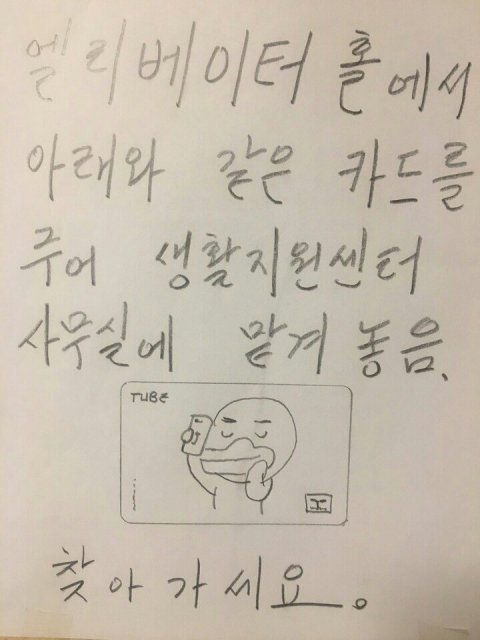 엘리베이터 홀에서
아래와 같은 카드를
주어 생활지원센터
사무실에 맡겨 놓음.
TUBE
찾아가세요.